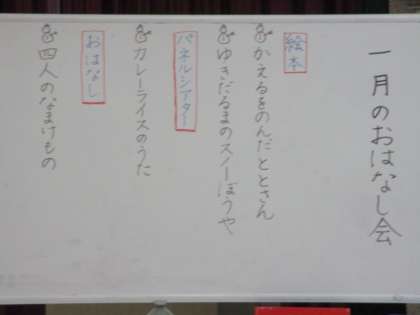 一月のおはなし会
絵本
かえるをのんだととさん
ゆきだるまのスノーぼうや
パネルシアター
カレーライスのうた
おはなし
四人のなまけもの